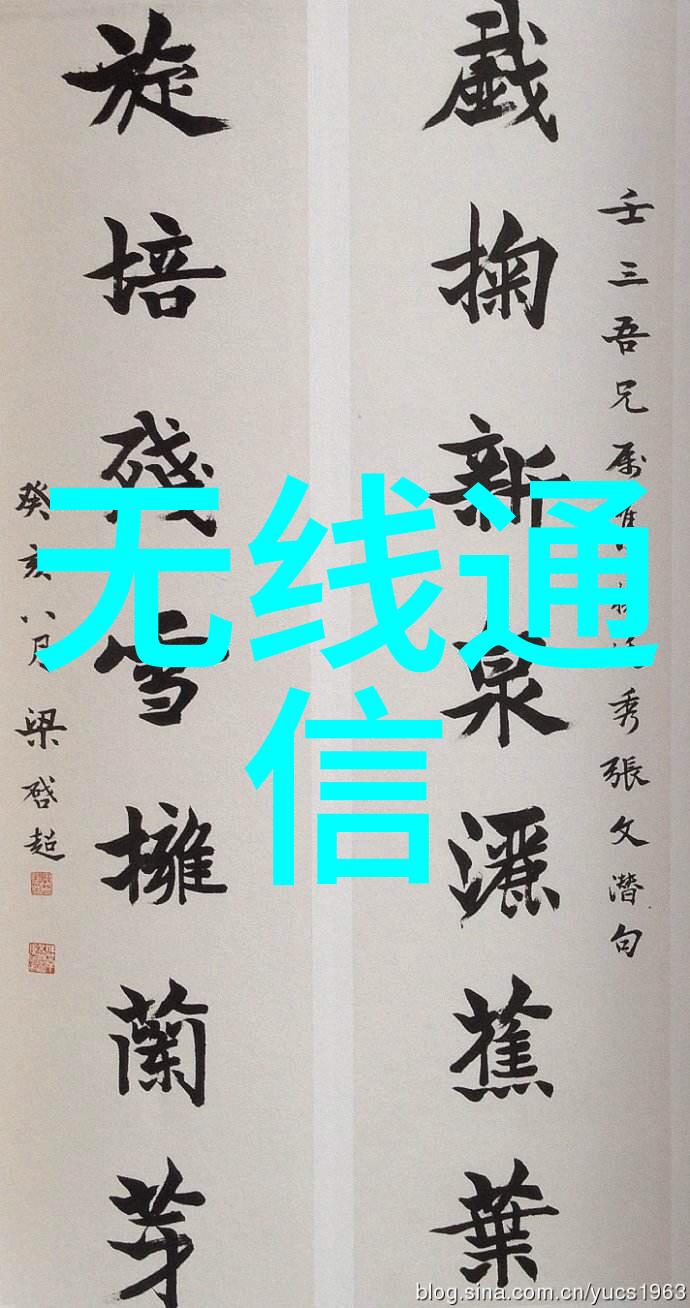 壬三吾兄属
秀張文潜句
戲掬新泉灑蕉葉
旋培殘雪擁蘭芽
癸亥八月
梁啓超
无线通
信
blog.sina.com.cn/yucs1963